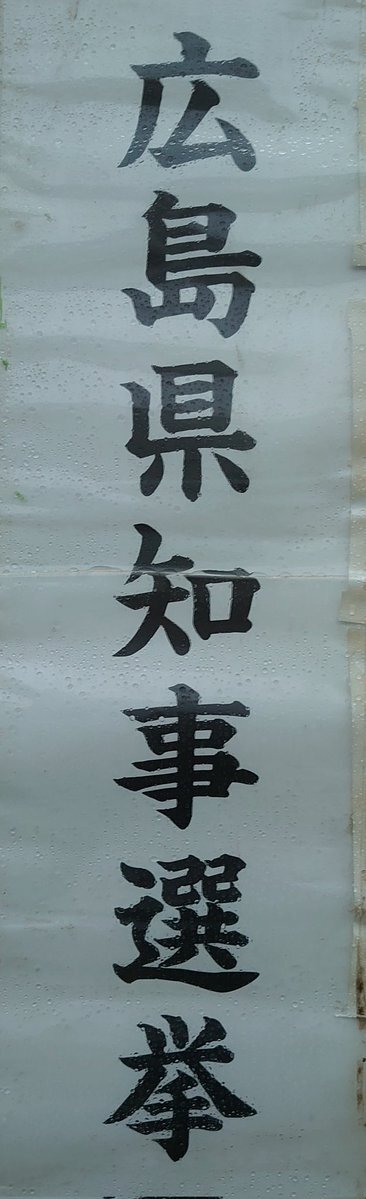 広島県知事選挙